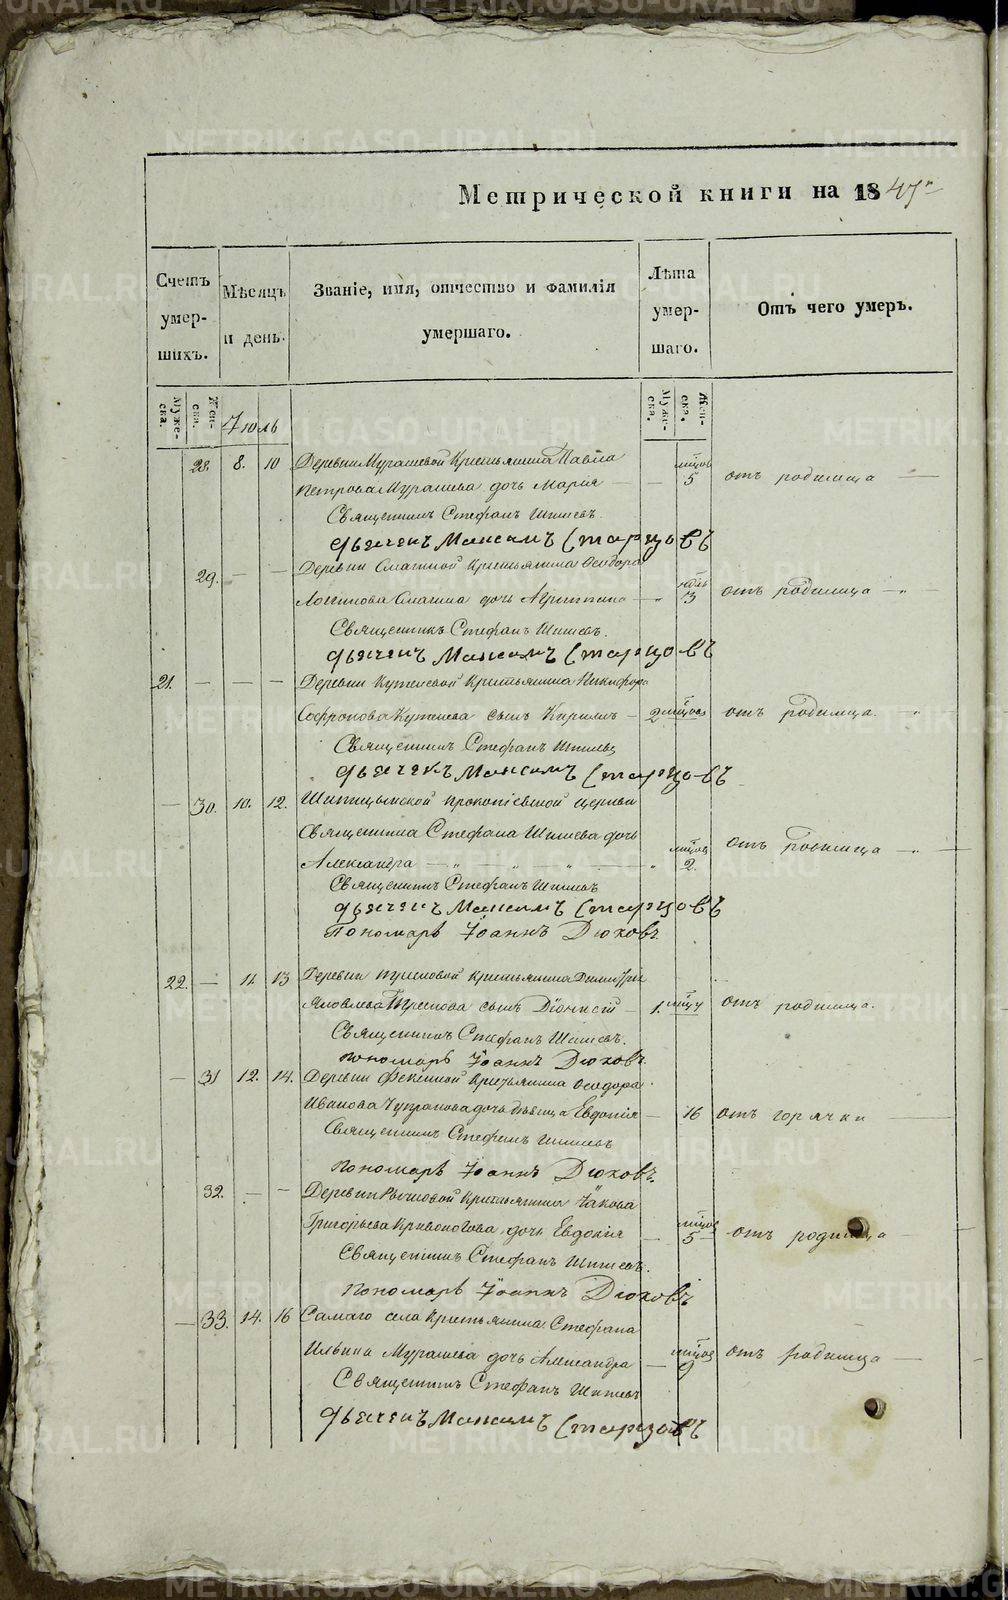 Метрической книги на 1847й
Счетъ умер- шихъ.
Мѣсяцъ и день.
Званіе, имя, отчество и фамилія умершаго.
Лѣта умер- шаго.
Отъ чего умеръ.
Муже- ска.
Жен- ска.
Іюль
Муже- ска.
Жен- ска.
28. 8. 10 Деревни Мурашевой Крестьянина Павла мѣцов
Петрова Мурашева дочь Мария — — 5 отъ родимца —
Священникъ Стефанъ Шишевъ.
Дьячекъ Максимъ Старцовъ
29. — — Деревни Смагиной Крестьянина Феодора
Логинова Смагина дочь Агрипина — „ 3 отъ родимца — „ —
Священникъ Стефанъ Шишевъ.
Дьячекъ Максимъ Старцовъ
21. — — — Деревни Крестьянина Никифора
Софронова сынъ Кирилъ — 2 мѣцовъ отъ родимца. „
Священникъ Стефанъ Шишевъ
Дьячекъ Максимъ Старцовъ
— 30. 10. 12. Шипицынской Прокопіевской церкви
Священника Стефана Шишева дочь мѣцовъ отъ родимца — „ —
Александра — „ — „ — „ — „ 2.
Священникъ Стефанъ Шишевъ
Дьячекъ Максимъ Старцовъ
Пономарь Іоаннъ Дюковъ.
22. — 11. 13 Деревни Крестьянина Димитрия
Яковлева сынъ Діонисій — 1. мѣцъ отъ родимца.
Священникъ Стефанъ Шишевъ.
Пономарь Іоаннъ Дюковъ.
— 31 12. 14. Деревни Крестьянина Феодора
Иванова Чупракова дочь дѣвица Евдокія — 16 отъ горячки
Священникъ Стефанъ Шишевъ
Пономарь Іоаннъ Дюковъ.
32. — — Деревни Крестьянина Іакова
Григорьева Кривоногова дочь Евдокія — мѣцов 5 отъ родимца
Священникъ Стефанъ Шишевъ.
Пономарь Іоаннъ Дюковъ
— 33. 14. 16 Самаго села Крестьянина Стефана
Ильина Мурашева дочь Александра — мѣцов 9 отъ родимца —
Священникъ Стефанъ Шишевъ
Дьячекъ Максимъ Старцовъ
METRIKI.GASO-URAL.RU